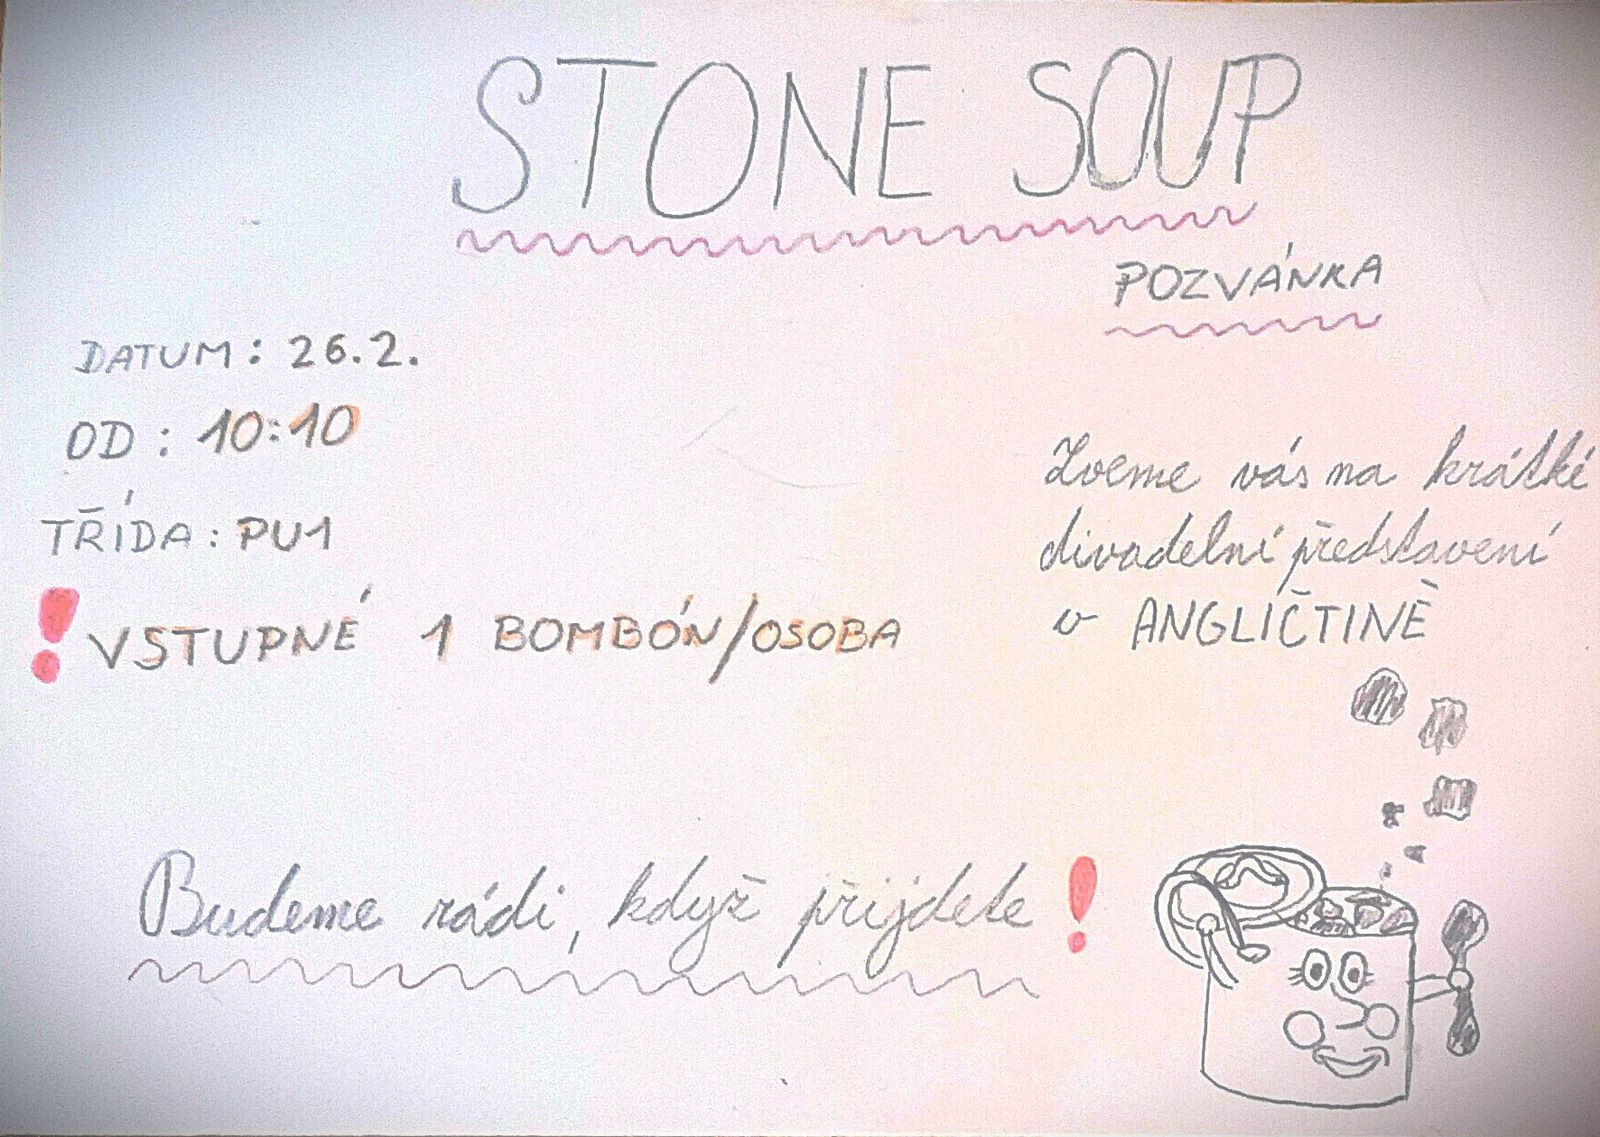 STONE SOUP
POZVÁNKA
DATUM: 26.2.
OD: 10:10
TŘÍDA: PU1
! VSTUPNÉ 1 BOMBÓN/OSOBA
Zveme vás na krátké
divadelní představení
v ANGLIČTINĚ
Budeme rádi, když přijdete!